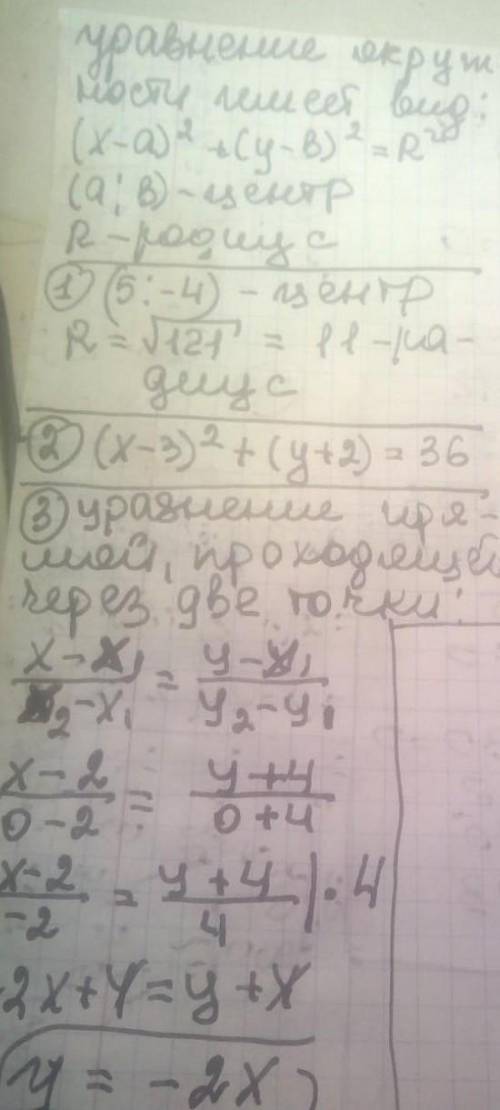 уравнение окруж
ности имеет вид:
(x-a)² + (y-в)² = R²
(a; в) - центр
R - радиус
① (5; -4) - центр
R = √121 = 11 - ра-
диус
② (x-3)² + (y+2) = 36
③ уравнение пря-
мой, проходящей
через две точки:
(x-x₁)/(x₂-x₁) = (y-y₁)/(y₂-y₁)
(x-2)/(0-2) = (y+4)/(0+4)
(x-2)/(-2) = (y+4)/4 | · 4
-2x+4=y+4
y = -2x